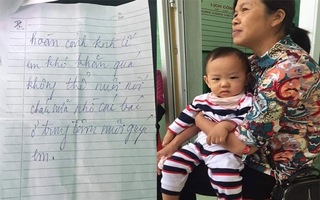 Hoàn cảnh kinh tế
em khó khăn quá
không thể nuôi nổi
cháu nữa nhờ các bác
ở trung tâm nuôi giúp
em.
LỊCH CÔNG